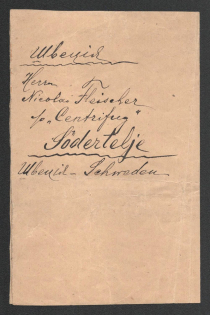 Швеція
Herrn
Nicolai Fleischer
„Centrifug“
Södertelje
Швеція - Schweden